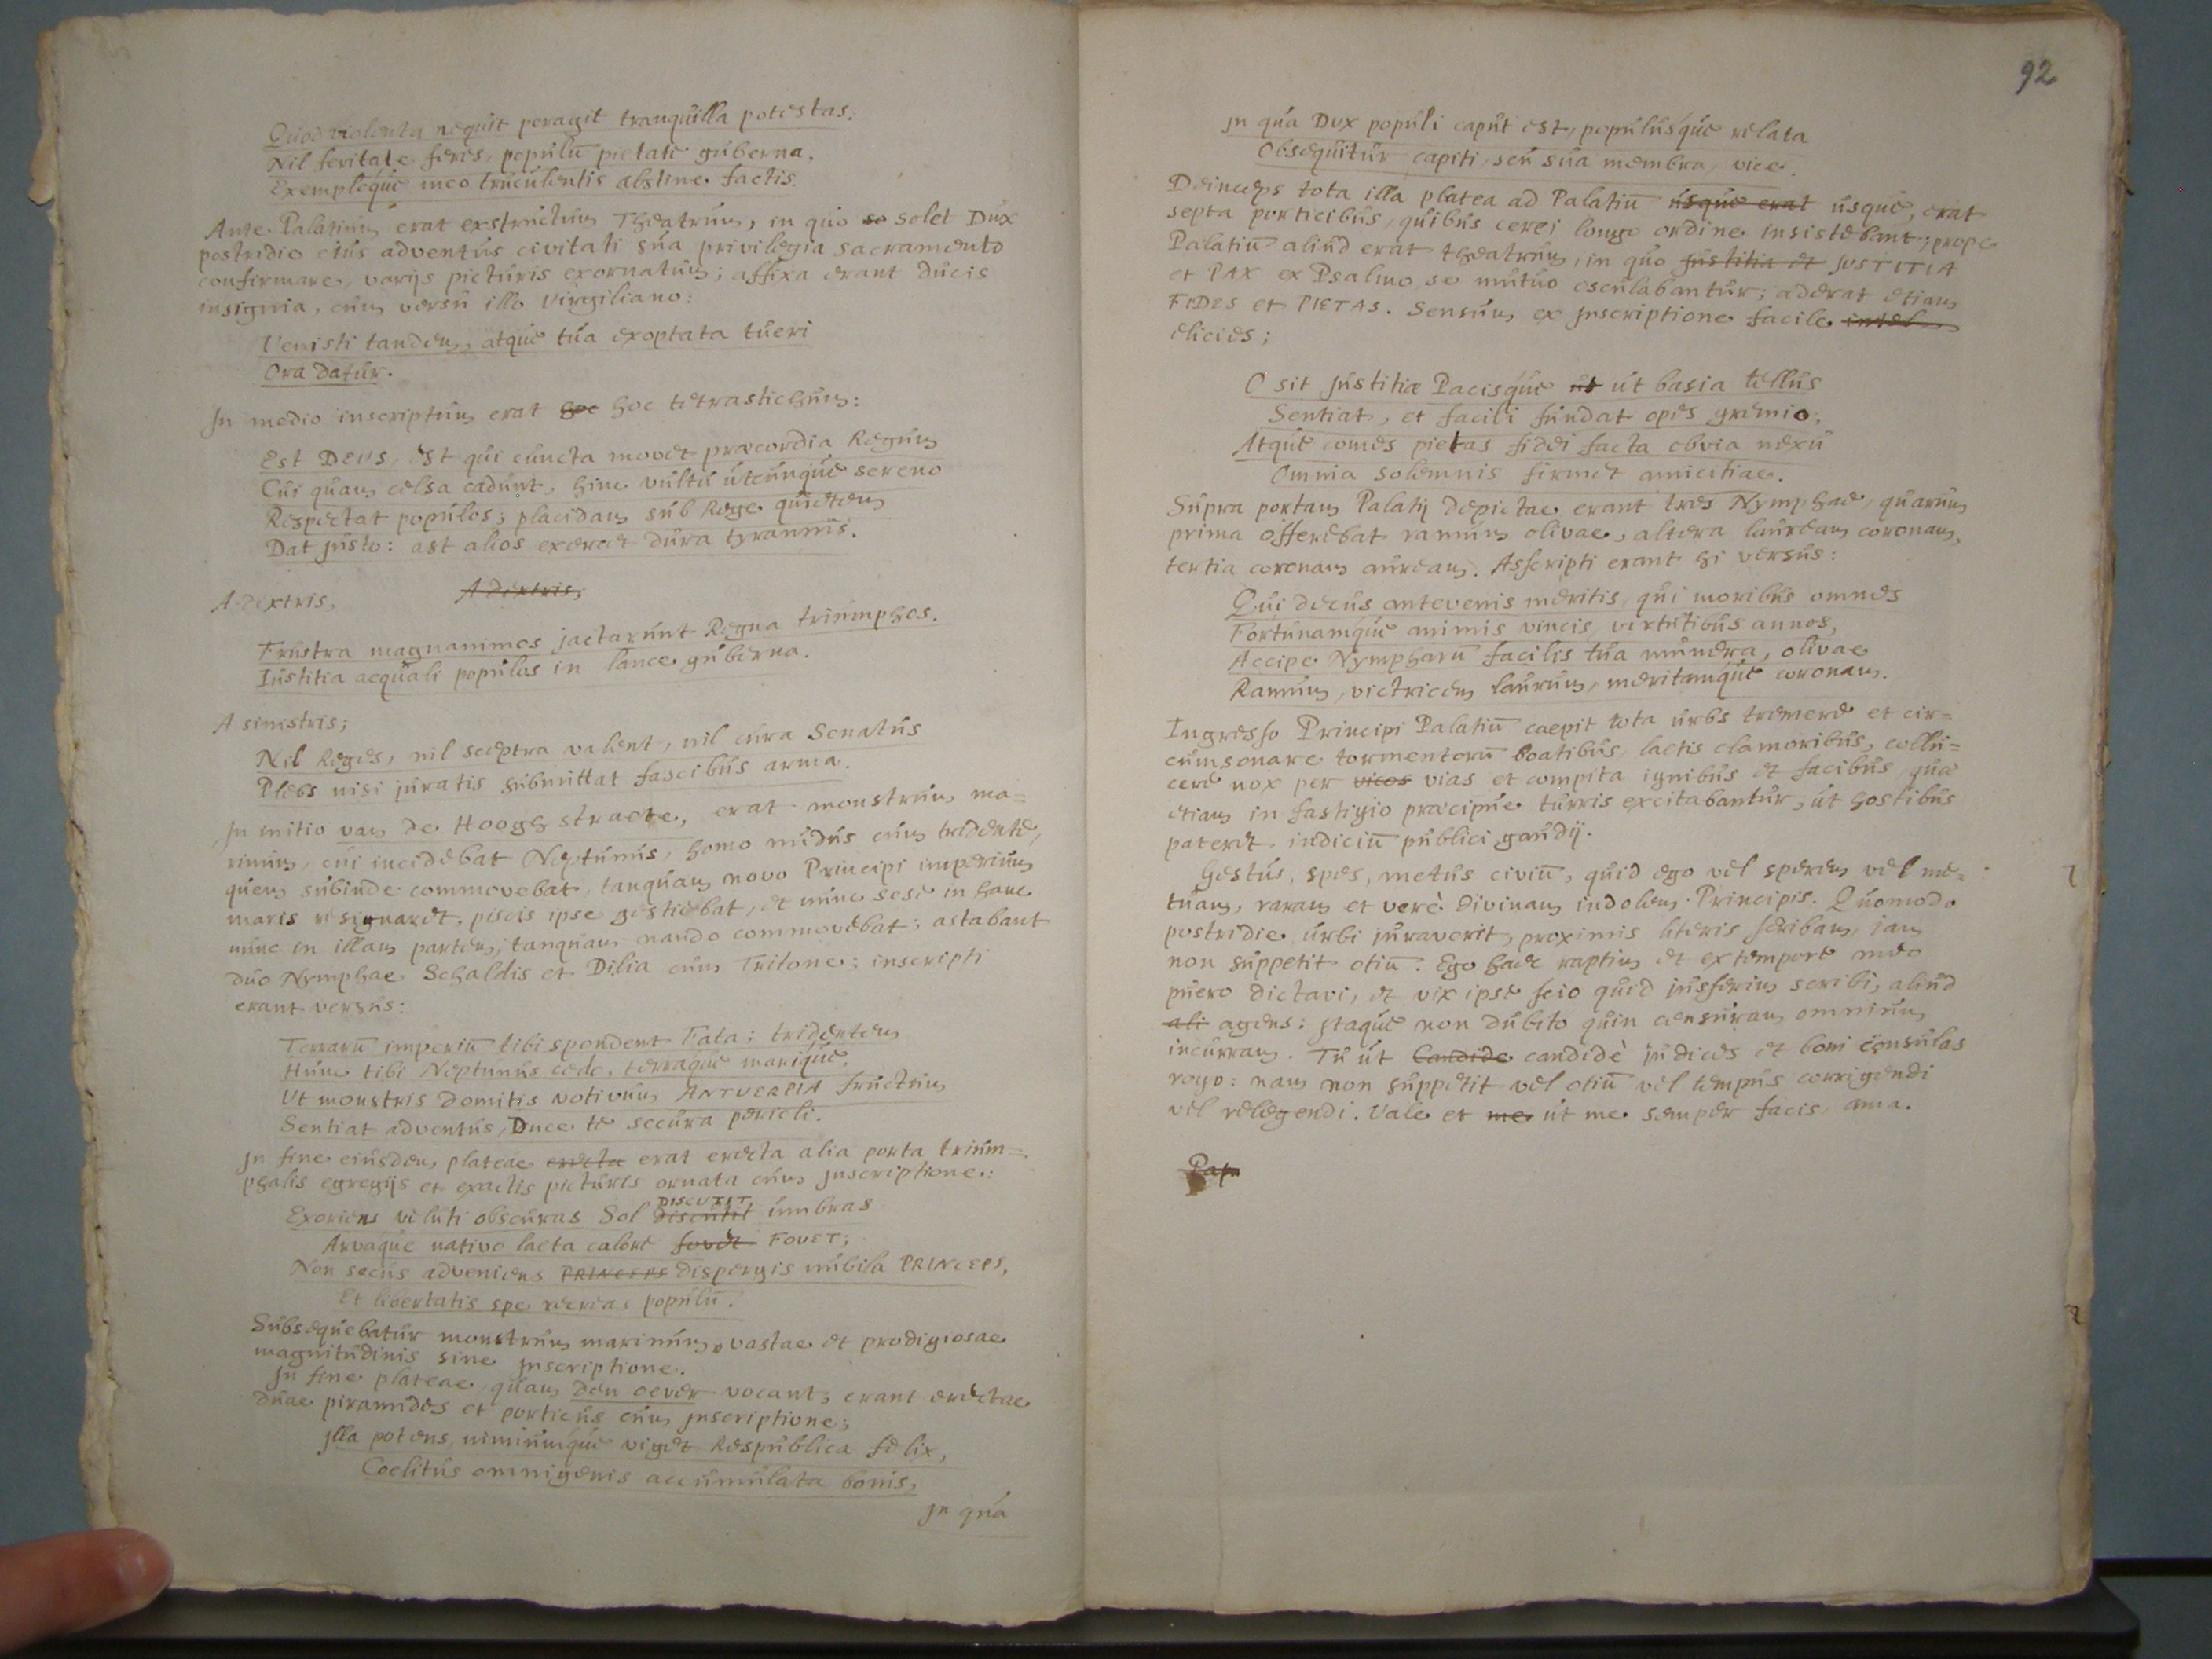 Quod violenta nequit peragit tranquilla potestas.
Nil feritate feres, populū pietate guberna.
Exemploque meo truculentis abstine factis.
Ante Palatium erat exstructum Theatrum, in quo so solet Dux
postridie eius adventus civitati sua privilegia sacramento
confirmare, varijs picturis exornatum; affixa erant Ducis
insignia, cum versu illo Virgiliano:
Venisti tandem, atque tua exoptata tueri
Ora datur.
In medio inscriptum erat hoc hoc tetrastichum:
Est DEUS, est qui cuncta movet præcordia Regum
Cui quam celsa cadunt, hinc vultu utcunque sereno
Respectat populos; placidam sub Rege quietem
Dat justo: ast alios exercet dura tyrannis.
A dextris, A dextris;
Frustra magnanimos jactarunt Regna triumphos.
Iustitia aequali populos in lance guberna.
A sinistris;
Nil Reges, nil sceptra valent, nil cura Senatus
Plebs nisi juratis submittat fascibus arma.
In initio van de Hoogh straete, erat monstrum ma=
rinum, cui incidebat Neptunus, homo nudus cum tridente,
quem subinde commovebat, tanquam novo Principi imperium
maris resignaret, piscis ipse gestiebat, et nunc sese in hanc
nunc in illam partem, tanquam nando commovebat; astabant
duo Nymphae Schaldis et Dilia cum Tritone; inscripti
erant versus:
Terrarū imperiū tibi spondent Fata; tridentem
Hunc tibi Neptunus cede, terraque marique.
Ut monstris domitis votivum ANTUERPIA fructum
Sentiat adventus, Duce te secura pericli.
In fine eiusdem plateae erecta erat erecta alia porta trium=
phalis egregijs et exactis picturis ornata cum Inscriptione:
Exoriens veluti obscuras Sol discutit DISCUTIT umbras
Arvaque nativo laeta calore fovet FOVET;
Non secus adveniens PRINCEPS dispergis nubila PRINCEPS,
Et libertatis spe recreas populū.
Subsequebatur monstrum marinum, vastae et prodigiosae
magnitudinis sine Inscriptione.
In fine plateae, quam den oever vocant, erant erectae
duae piramides et porticus cum Inscriptione;
Illa potens, nimiumque viget Respublica felix,
Coelitus omnigenis accumulata bonis,
In qua
92
In qua DUX populi caput est, populusque relata
Obsequitur capiti, seu sua membra, vice.
Deinceps tota illa platea ad Palatiū usque erat usque, erat
septa porticibus, quibus cerei longo ordine insistebant; prope
Palatiū aliud erat theatrum, in quo Justitia et JUSTITIA
et PAX ex Psalmo se mutuo osculabantur; aderat etiam
FIDES et PIETAS. Sensum ex Inscriptione facile intel
elicies;
O sit Justitiæ Pacisque ut ut basia tellus
Sentiat, et facili fundat opes gremio.
Atque comes pietas fidei facta obvia nexu
Omnia solemnis firmet amicitiae.
Supra portam Palatij depictae erant tres Nymphae, quarum
prima offerebat ramum olivae, altera lauream coronam,
tertia coronam auream. Asscripti erant hi versus:
Qui decus antevenis meritis, qui moribus omnes
Fortunamque animis vincis, virtutibus annos,
Accipe Nympharū facilis tua munera, olivae
Ramum, victricem laurum, meritamque coronam.
Ingresso Principi Palatiū caepit tota urbs tremere et cir=
cumsonare tormentorū boatibus, laetis clamoribus, collu=
cere nox per vicos vias et compita ignibus et facibus, quae
etiam in fastigio præcipue turris excitabantur, ut hostibus
pateret, indiciū publici gaudij.
Gestus, spes, metus civiū, quid ego vel sperem vel me=
tuam, raram et verè divinam indolem Principis. Quomodo
postridie urbi juraverit, proximis literis scribam, iam
non suppetit otiū. Ego haec raptim et extempore meo
puero dictavi, et vix ipse scio quid jusserim scribi, aliud
ali agens: Itaque non dubito quin censuram omnium
incurram. Tu ut Candide candidè judices et boni consulas
rogo: nam non suppetit vel otiū vel tempus corrigendi
vel relegendi. Vale et me ut me semper facis, ama.